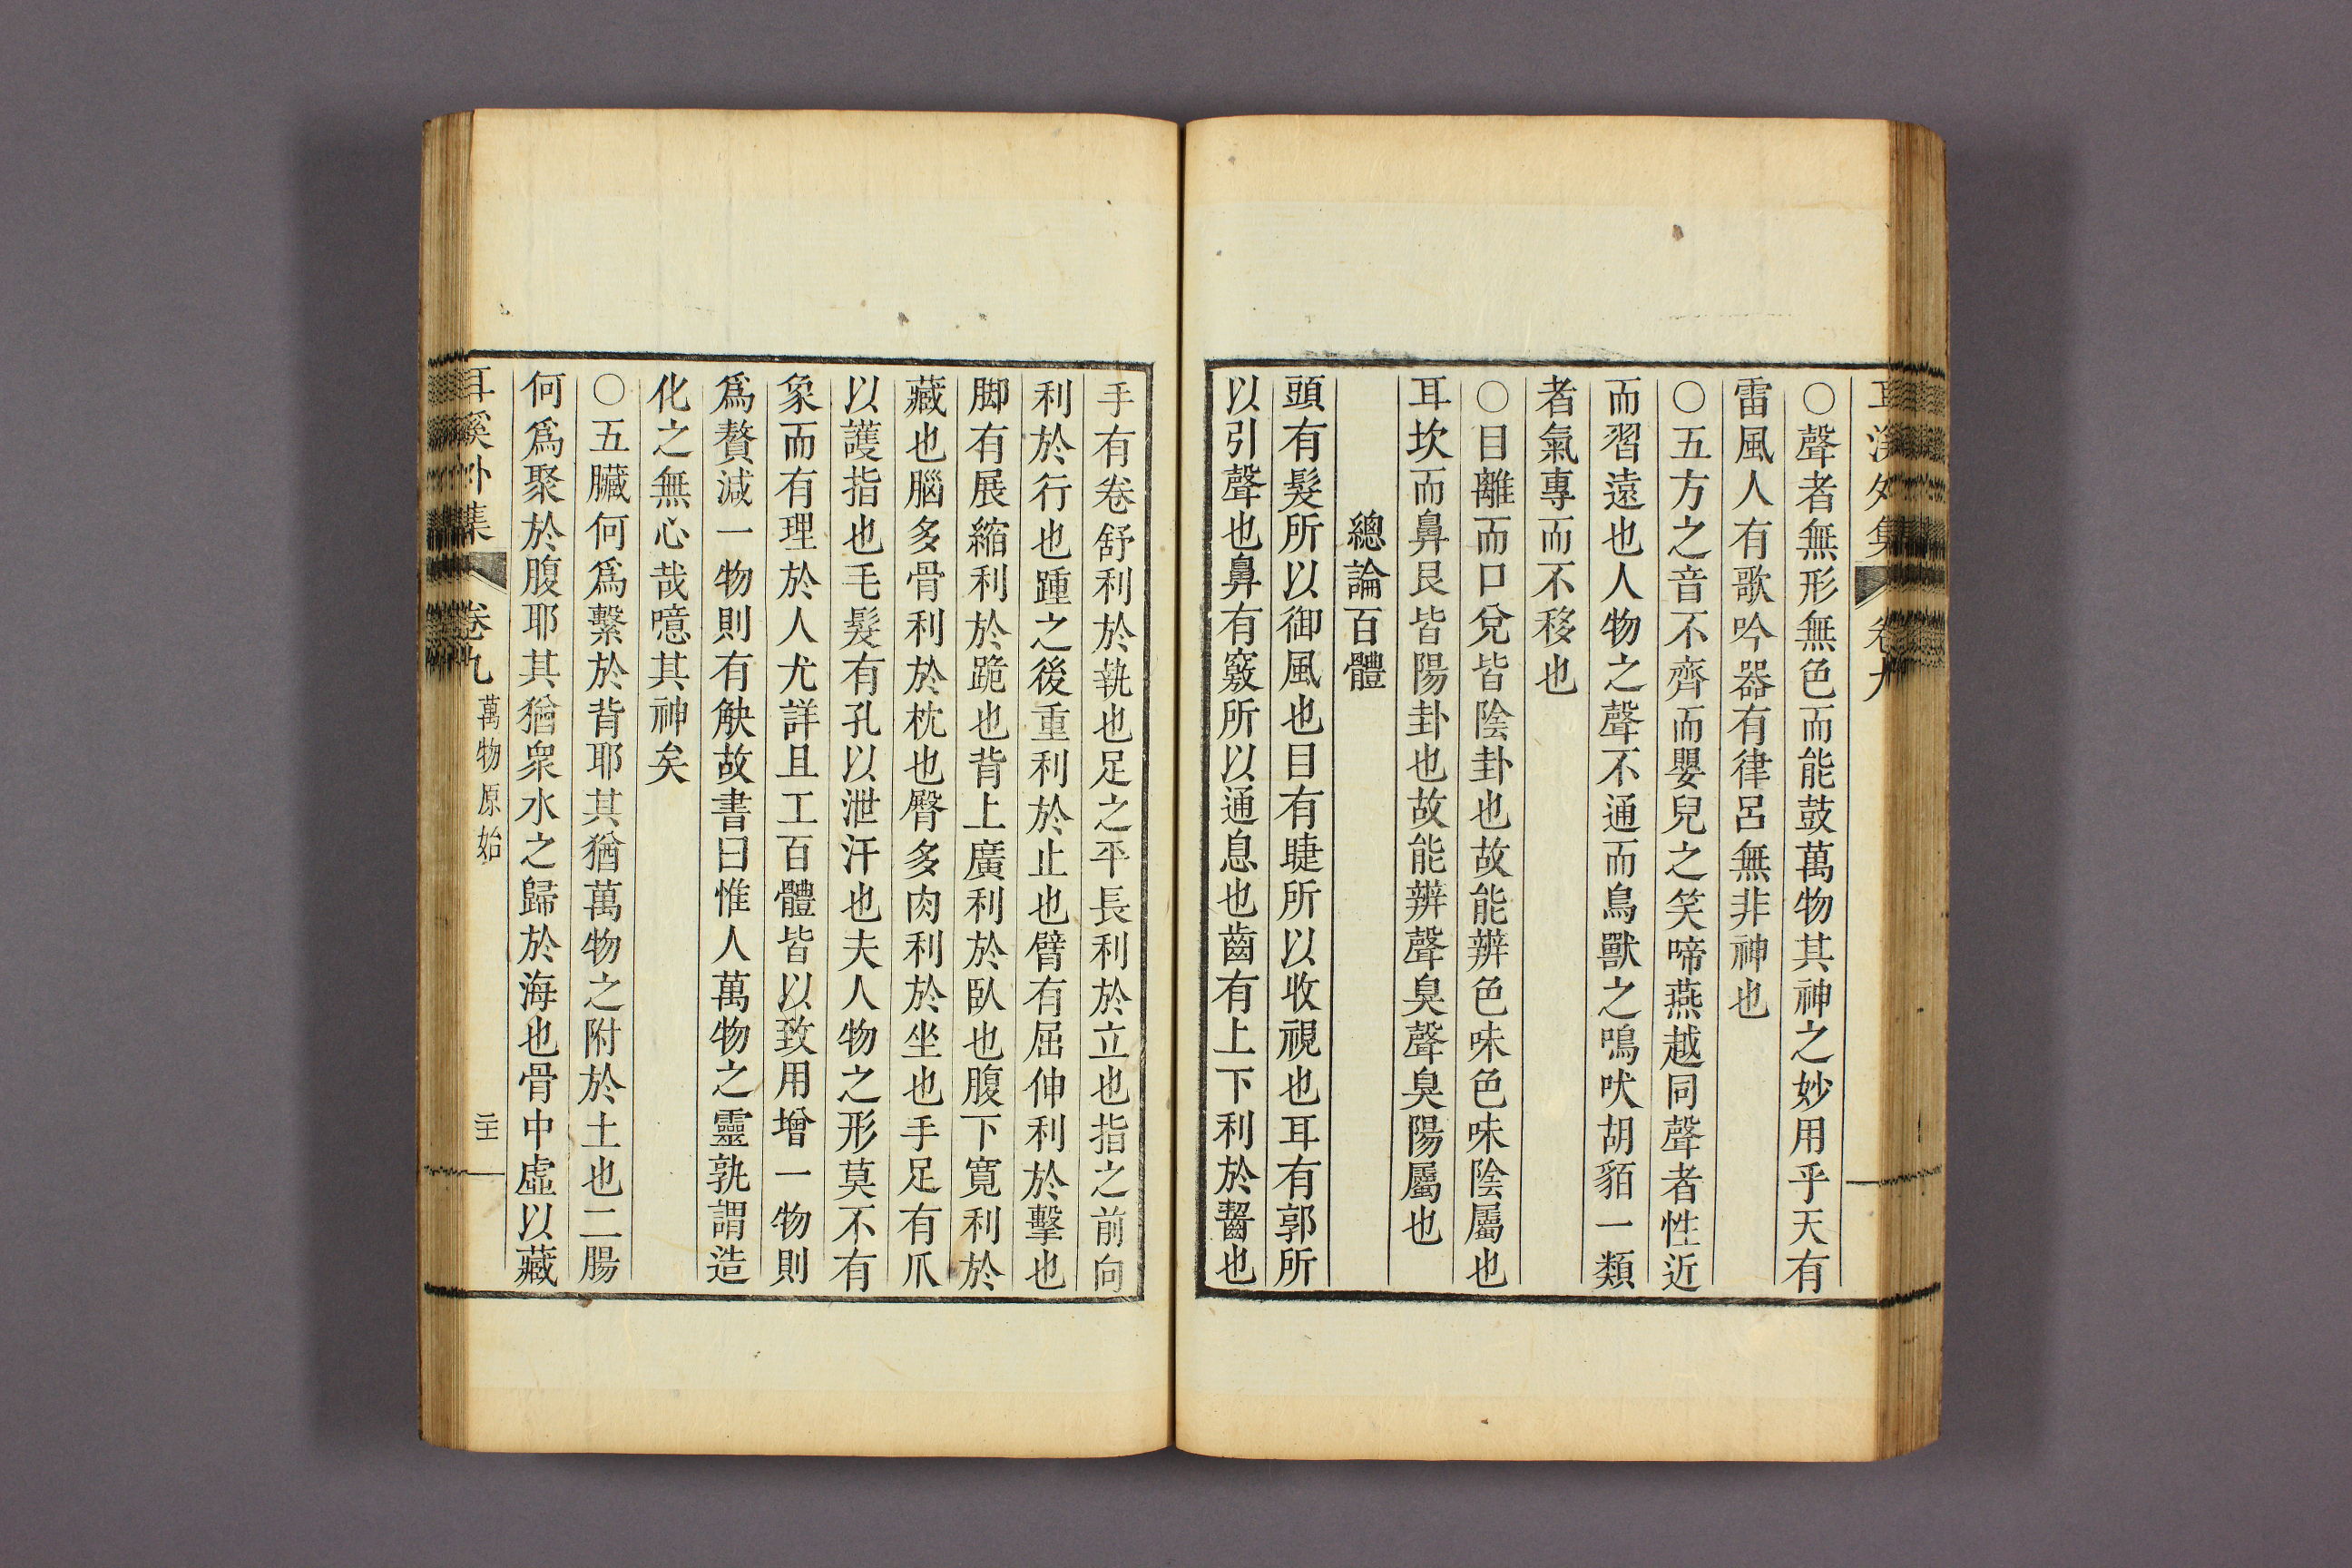 耳溪外集 卷九
〇聲者無形無色而能鼓萬物其神之妙用乎天有
雷風人有歌吟器有律呂無非神也
〇五方之音不齊而嬰兒之笑啼燕越同聲者性近
而習遠也人物之聲不通而鳥獸之鳴吠胡貊一類
者氣專而不移也
〇目離而口兌皆陰卦也故能辨色味色味陰屬也
耳坎而鼻艮皆陽卦也故能辨聲臭聲臭陽屬也
總論百體
頭有髮所以御風也目有睫所以收視也耳有郭所
以引聲也鼻有竅所以通息也齒有上下利於齧也
手有卷舒利於執也足之平長利於立也指之前向
利於行也踵之後重利於止也臂有屈伸利於擊也
脚有展縮利於跪也背上廣利於臥也腹下寬利於
藏也腦多骨利於枕也臀多肉利於坐也手足有爪
以護指也毛髮有孔以泄汗也夫人物之形莫不有
象而有理於人尤詳且工百體皆以致用增一物則
爲贅減一物則有觖故書曰惟人萬物之靈孰謂造
化之無心哉噫其神矣
〇五臟何爲繫於背耶其猶萬物之附於土也二腸
何爲聚於腹耶其猶衆水之歸於海也骨中虛以藏
耳溪外集 卷九 萬物原始